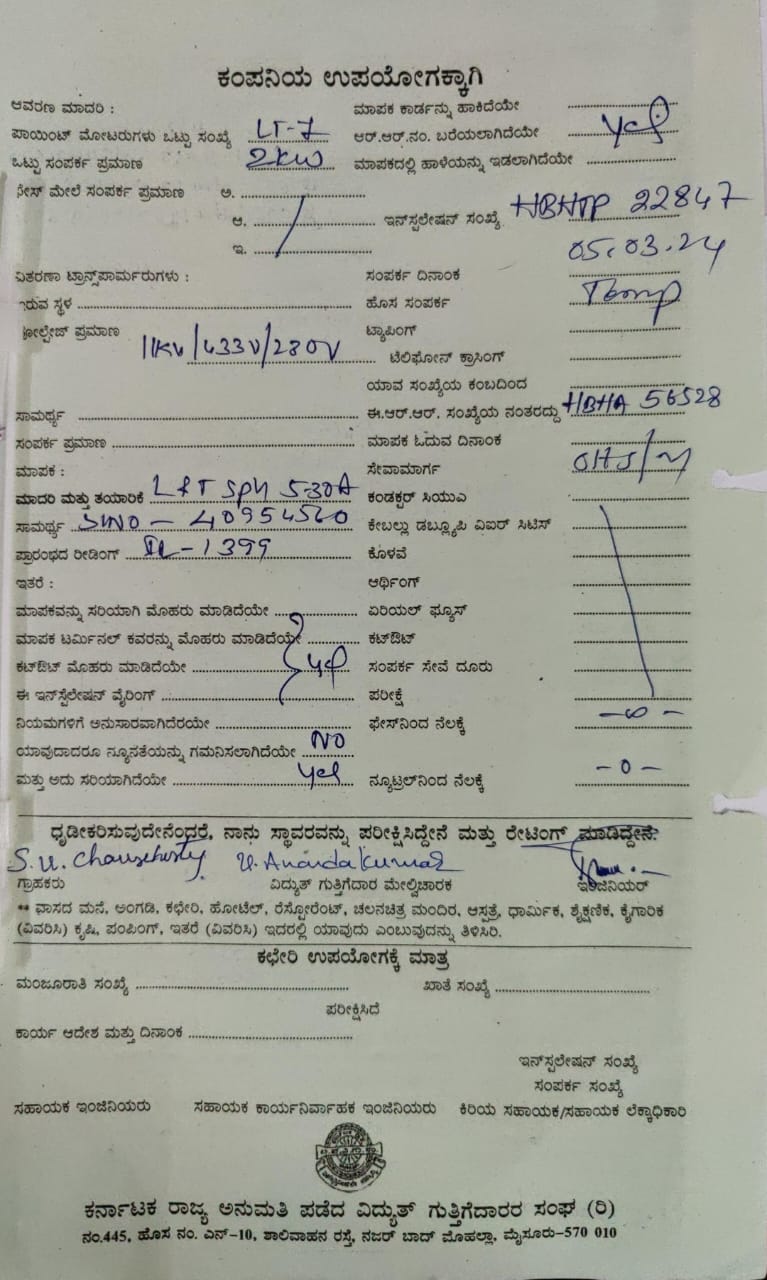 ಕಂಪನಿಯ ಉಪಯೋಗಕ್ಕಾಗಿ
ಆವರಣ ಮಾದರಿ : ಮಾಪಕ ಕಾರ್ಡನ್ನು ಹಾಕಿದೆಯೇ
ಪಾಯಿಂಟ್ ಮೋಟರುಗಳು ಒಟ್ಟು ಸಂಖ್ಯೆ LT-7 ಆರ್.ಆರ್.ನಂ. ಬರೆಯಲಾಗಿದೆಯೇ Yes
ಒಟ್ಟು ಸಂಪರ್ಕ ಪ್ರಮಾಣ 2kw ಮಾಪಕದಲ್ಲಿ ಹಾಳೆಯನ್ನು ಇಡಲಾಗಿದೆಯೇ
ಸೇಸ್ ಮೇಲೆ ಸಂಪರ್ಕ ಪ್ರಮಾಣ ಅ.
ಆ. ಇನ್‌ಸ್ಟಲೇಷನ್ ಸಂಖ್ಯೆ HBHTP 22847
ಇ. 05.03.24
ವಿತರಣಾ ಟ್ರಾನ್ಸ್‌ಫಾರ್ಮರುಗಳು : ಸಂಪರ್ಕ ದಿನಾಂಕ
ಇರುವ ಸ್ಥಳ ಹೊಸ ಸಂಪರ್ಕ Temp
ವೋಲ್ಟೇಜ್ ಪ್ರಮಾಣ 11KV/433V/230V ಟ್ಯಾಪಿಂಗ್
ಟೆಲಿಫೋನ್ ಕ್ರಾಸಿಂಗ್
ಯಾವ ಸಂಖ್ಯೆಯ ಕಂಬದಿಂದ
ಸಾಮರ್ಥ್ಯ ಈ.ಆರ್.ಆರ್. ಸಂಖ್ಯೆಯ ನಂತರದ್ದು HBHA 56528
ಸಂಪರ್ಕ ಪ್ರಮಾಣ ಮಾಪಕ ಓದುವ ದಿನಾಂಕ
ಮಾಪಕ : ಸೇವಾಮಾರ್ಗ
ಮಾದರಿ ಮತ್ತು ತಯಾರಿಕೆ L&T SPM 5-30A ಕಂಡಕ್ಟರ್ ಸಿಯುಎ
ಸಾಮರ್ಥ್ಯ SlNO - 40954560 ಕೇಬಲ್ಲು ಡಬ್ಲ್ಯೂಪಿ ವಿಐರ್ ಸಿಟಿಸ್
ಪ್ರಾರಂಭದ ರೀಡಿಂಗ್ IR-1399 ಕೊಳವೆ
ಇತರೆ : ಆರ್ಥಿಂಗ್
ಮಾಪಕವನ್ನು ಸರಿಯಾಗಿ ಮೊಹರು ಮಾಡಿದೆಯೇ ಏರಿಯಲ್ ಫ್ಯೂಸ್
ಮಾಪಕ ಟರ್ಮಿನಲ್ ಕವರನ್ನು ಮೊಹರು ಮಾಡಿದೆಯೇ ಕಟ್‌ಔಟ್
ಕಟ್‌ಔಟ್ ಮೊಹರು ಮಾಡಿದೆಯೇ Yes ಸಂಪರ್ಕ ಸೇವೆ ದೂರು
ಈ ಇನ್‌ಸ್ಟಲೇಷನ್ ವೈರಿಂಗ್ ಪರೀಕ್ಷೆ
ನಿಯಮಗಳಿಗೆ ಅನುಸಾರವಾಗಿದೆರಯೇ ಫೇಸ್‌ನಿಂದ ನೆಲಕ್ಕೆ -∞-
ಯಾವುದಾದರೂ ನ್ಯೂನತೆಯನ್ನು ಗಮನಿಸಲಾಗಿದೆಯೇ NO
ಮತ್ತು ಅದು ಸರಿಯಾಗಿದೆಯೇ Yes ನ್ಯೂಟ್ರಲ್‌ನಿಂದ ನೆಲಕ್ಕೆ -0-
ಧೃಡೀಕರಿಸುವುದೇನೆಂದರೆ, ನಾನು ಸ್ಥಾವರವನ್ನು ಪರೀಕ್ಷಿಸಿದ್ದೇನೆ ಮತ್ತು ರೇಟಿಂಗ್ ಮಾಡಿದ್ದೇನೆ.
V. Anandakumar
ಗ್ರಾಹಕರು ವಿದ್ಯುತ್ ಗುತ್ತಿಗೆದಾರ ಮೇಲ್ವಿಚಾರಕ ಇಂಜಿನಿಯರ್
** ವಾಸದ ಮನೆ, ಅಂಗಡಿ, ಕಛೇರಿ, ಹೋಟೆಲ್, ರೆಸ್ಟೋರೆಂಟ್, ಚಲನಚಿತ್ರ ಮಂದಿರ, ಆಸ್ಪತ್ರೆ, ಧಾರ್ಮಿಕ, ಶೈಕ್ಷಣಿಕ, ಕೈಗಾರಿಕ
(ವಿವರಿಸಿ) ಕೃಷಿ, ಪಂಪಿಂಗ್, ಇತರೆ (ವಿವರಿಸಿ) ಇದರಲ್ಲಿ ಯಾವುದು ಎಂಬುವುದನ್ನು ತಿಳಿಸಿರಿ.
ಕಛೇರಿ ಉಪಯೋಗಕ್ಕೆ ಮಾತ್ರ
ಮಂಜೂರಾತಿ ಸಂಖ್ಯೆ ಖಾತೆ ಸಂಖ್ಯೆ
ಪರೀಕ್ಷಿಸಿದೆ
ಕಾರ್ಯ ಆದೇಶ ಮತ್ತು ದಿನಾಂಕ
ಇನ್‌ಸ್ಟಲೇಷನ್ ಸಂಖ್ಯೆ
ಸಂಪರ್ಕ ಸಂಖ್ಯೆ
ಸಹಾಯಕ ಇಂಜಿನಿಯರು ಸಹಾಯಕ ಕಾರ್ಯನಿರ್ವಾಹಕ ಇಂಜಿನಿಯರು ಕಿರಿಯ ಸಹಾಯಕ/ಸಹಾಯಕ ಲೆಕ್ಕಾಧಿಕಾರಿ
ಕರ್ನಾಟಕ ರಾಜ್ಯ ಅನುಮತಿ ಪಡೆದ ವಿದ್ಯುತ್ ಗುತ್ತಿಗೆದಾರರ ಸಂಘ (ರಿ)
ನಂ.445, ಹೊಸ ನಂ. ಎನ್-10, ಶಾಲಿವಾಹನ ರಸ್ತೆ, ನಜರ್ ಬಾದ್ ಮೊಹಲ್ಲಾ, ಮೈಸೂರು-570 010